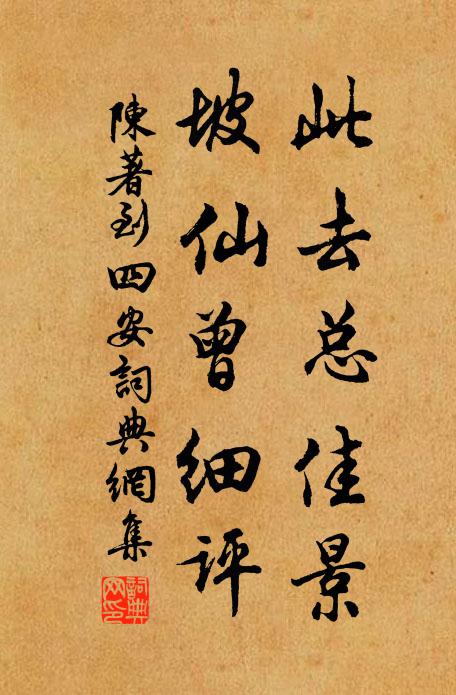 此去总佳景
坡仙曾细评
陳著到四安詞典網集
詞典网印